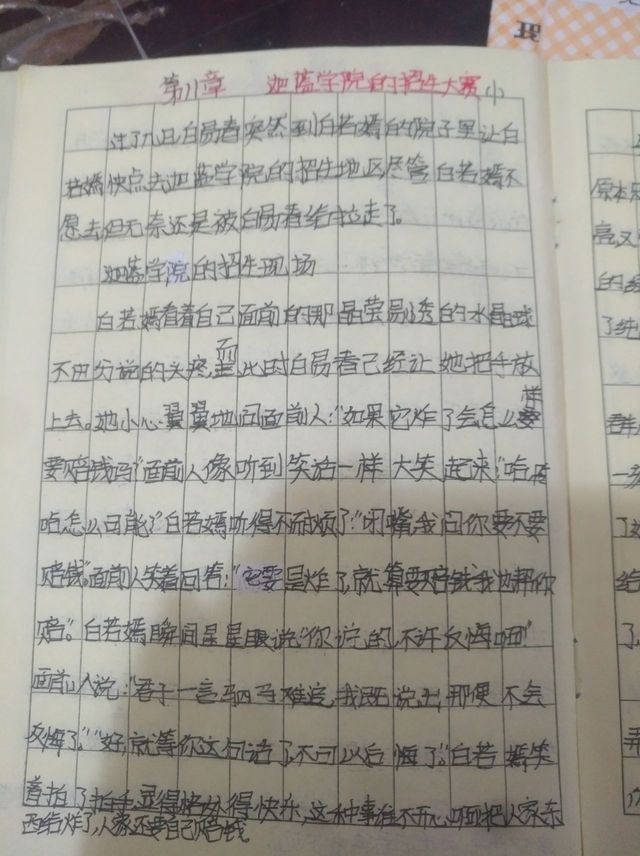 第11章 迦蓝学院的招生大赛(1)
过了几日白易春突然到白若嫣的院子里让白
若嫣快点去迦蓝学院的招生地区,尽管白若嫣不
愿去但无奈还是被白易春给拉走了。
迦蓝学院的招生现场
白若嫣看着自己面前的那晶莹易透的水晶球
不由分说的头疼,而且,此时白易春已经让她把手放
上去。她小心翼翼地问面前人:“如果它炸了会怎么样
要赔钱吗?”面前人像听到笑话一样大笑起来:“哈哈
哈怎么可能?”白若嫣听得不耐烦了:“闭嘴,我问你要不要
赔钱。”面前人笑着回答:“它要是炸了,就算要赔钱我也帮你
赔。”白若嫣瞬间星星眼说“你说的,不许反悔啊!”
面前人说:“君子一言驷马难追,我既说出,那便不会
反悔了。”“好,就等你这句话了,不可以后悔了。”白若嫣笑
着拍了拍手显得快乐,这种事谁不开心啊把人家东
西给炸了,人家还要自己赔钱。
原本
亮,又
的
了纯
群
一
了
给
了,